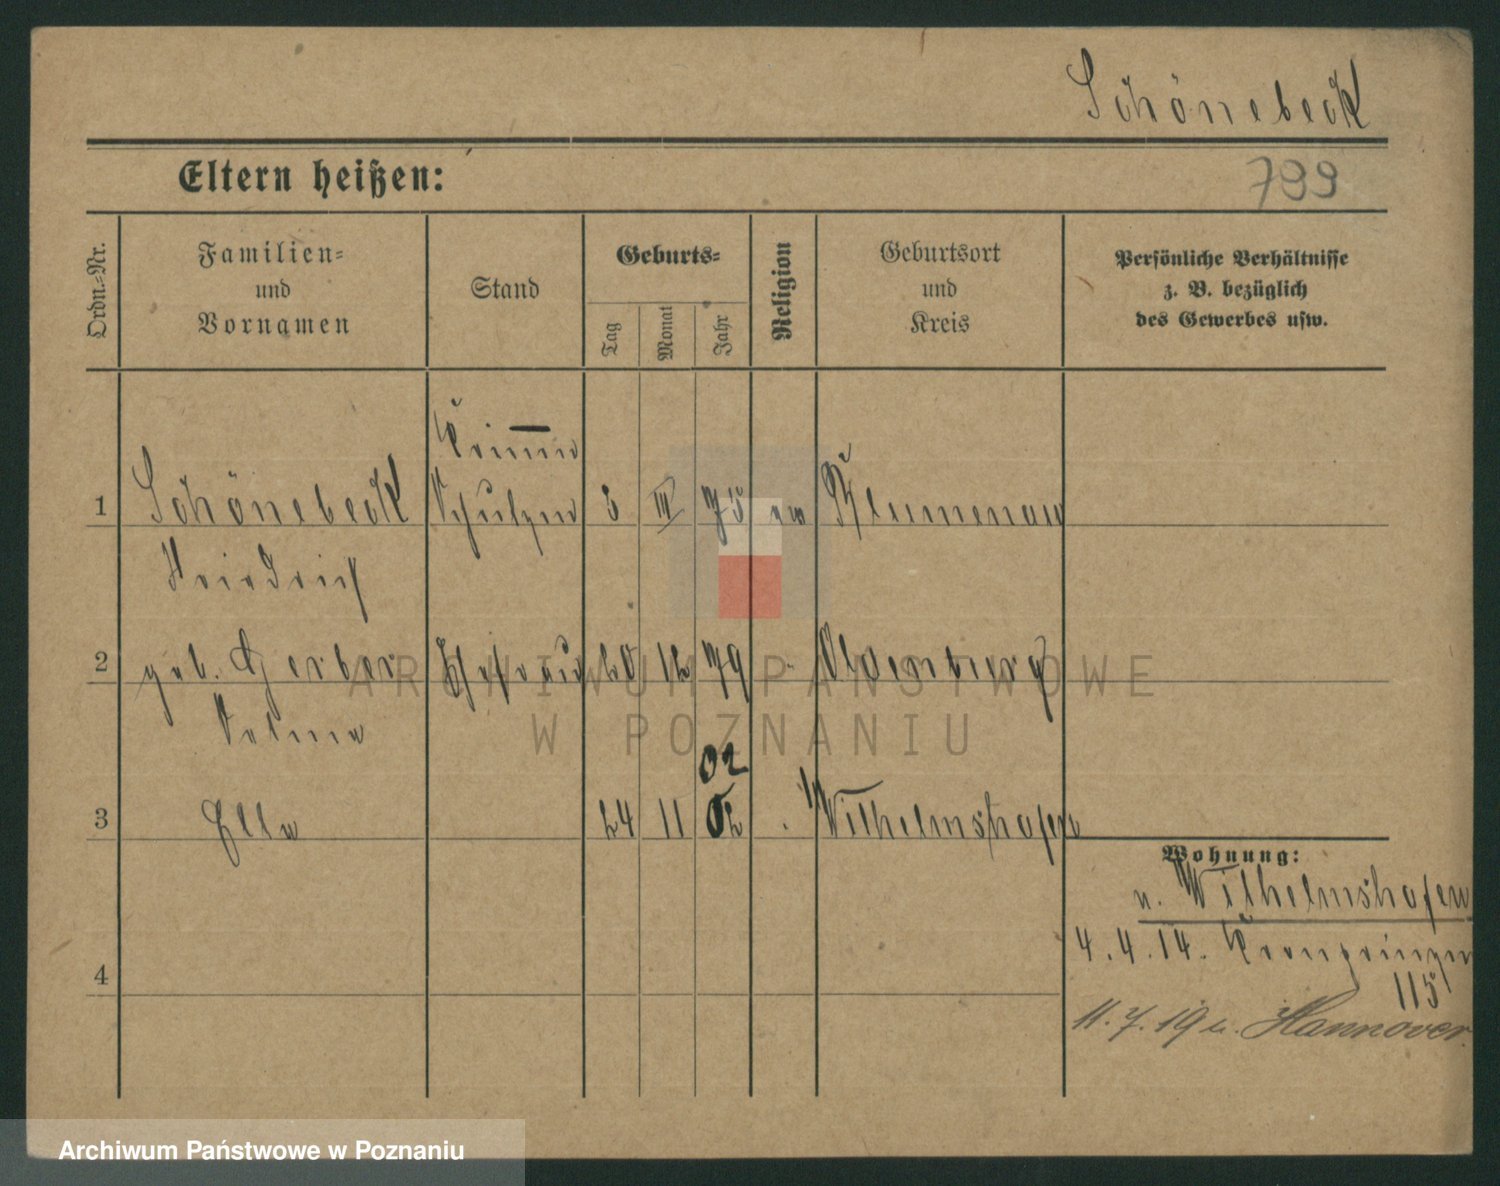 Schönebeck
Eltern heißen:
799
Ordn.-Nr.
Familien-
und
Vornamen
Stand
Geburts-
Tag
Monat
Jahr
Religion
Geburtsort
und
Kreis
Persönliche Verhältnisse
z. B. bezüglich
des Gewerbes usw.
1
Schönebeck
Schutzm
III
75
ev
Blumenau
Friedrich
2
geb. Gerber
Ehefrau
20
12
79
"
Oldenburg
02
3
Ella
24
11
02
Wilhelmshafen
Wohnung:
n. Wilhelmshafen
4
4.4.14. Kronprinzen
115
11.7.19 n. Hannover.
ARCHIWUM PAŃSTWOWE
W POZNANIU
Archiwum Państwowe w Poznaniu